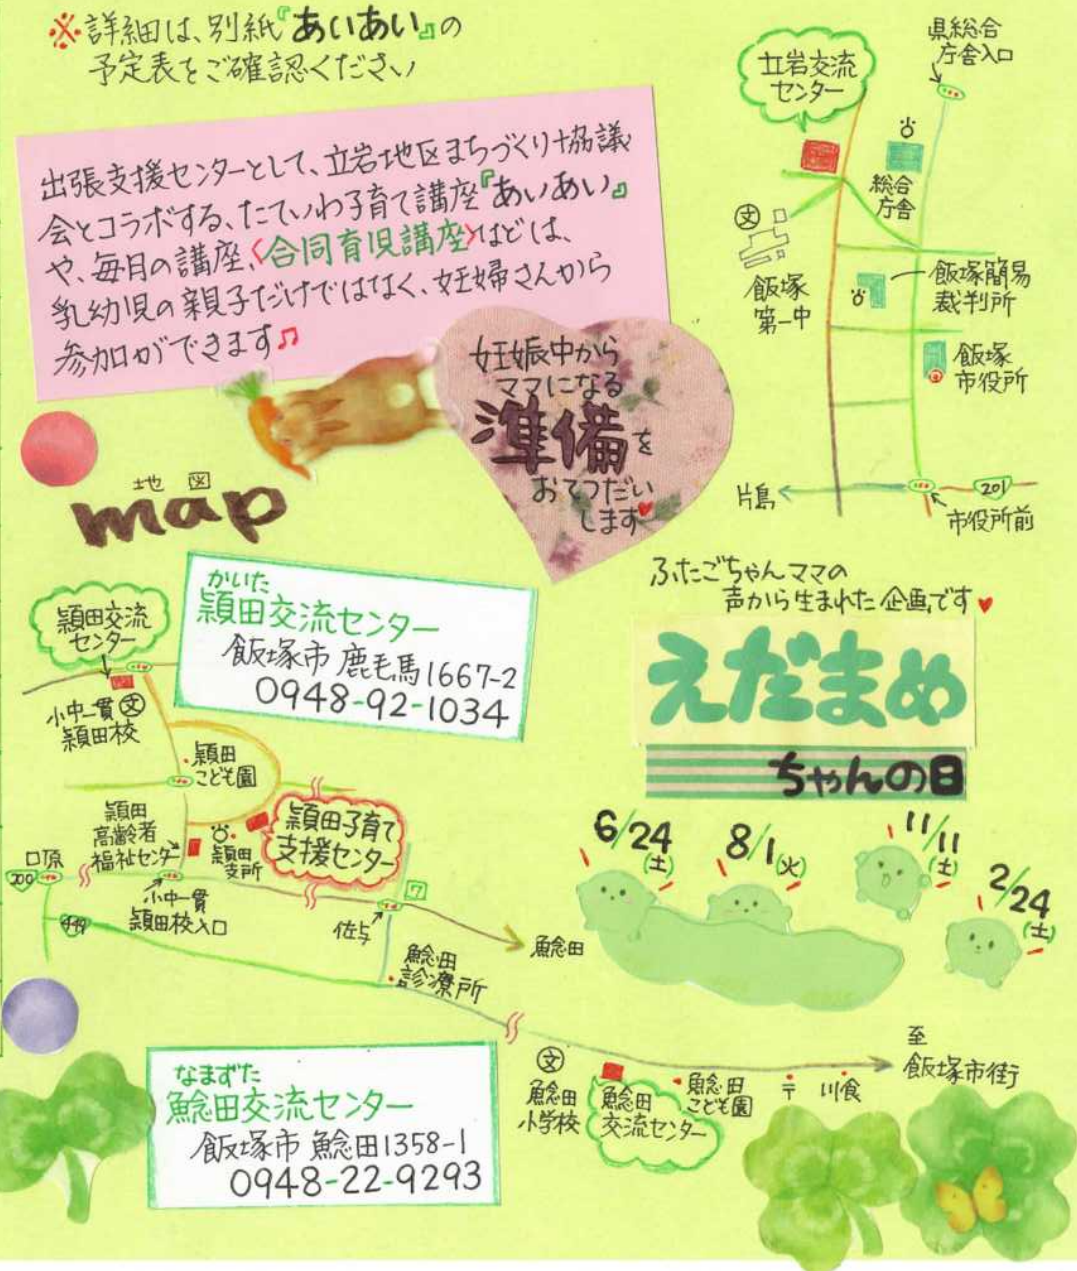 ※詳細は、別紙『あいあい』の
予定表をご確認ください
出張支援センターとして、立岩地区まちづくり協議
会とコラボする、たていわ子育て講座『あいあい』
や、毎月の講座、〈合同育児講座〉などは、
乳幼児の親子だけではなく、妊婦さんから
参加ができます♫
妊娠中から
ママになる
準備を
おてつだい
します♥
立岩交流
センター
県総合
庁舎入口
総合
庁舎
文
飯塚
第一中
飯塚簡易
裁判所
飯塚
市役所
片島
201
市役所前
地図
map
かいた
頴田交流センター
飯塚市 鹿毛馬1667-2
0948-92-1034
頴田交流
センター
小中一貫 文
頴田校
頴田
こども園
頴田
高齢者
福祉センター
頴田
支所
頴田子育て
支援センター
口原
200
小中一貫
頴田校入口
449
佐与
7
鯰田
鯰田
診療所
ふたごちゃんママの
声から生まれた企画です♥
えだまめ
ちゃんの日
6/24(土)
8/1(火)
11/11(土)
2/24(土)
なまずた
鯰田交流センター
飯塚市 鯰田1358-1
0948-22-9293
文
鯰田
小学校
鯰田
交流センター
鯰田
こども園
〒
川食
至
飯塚市街